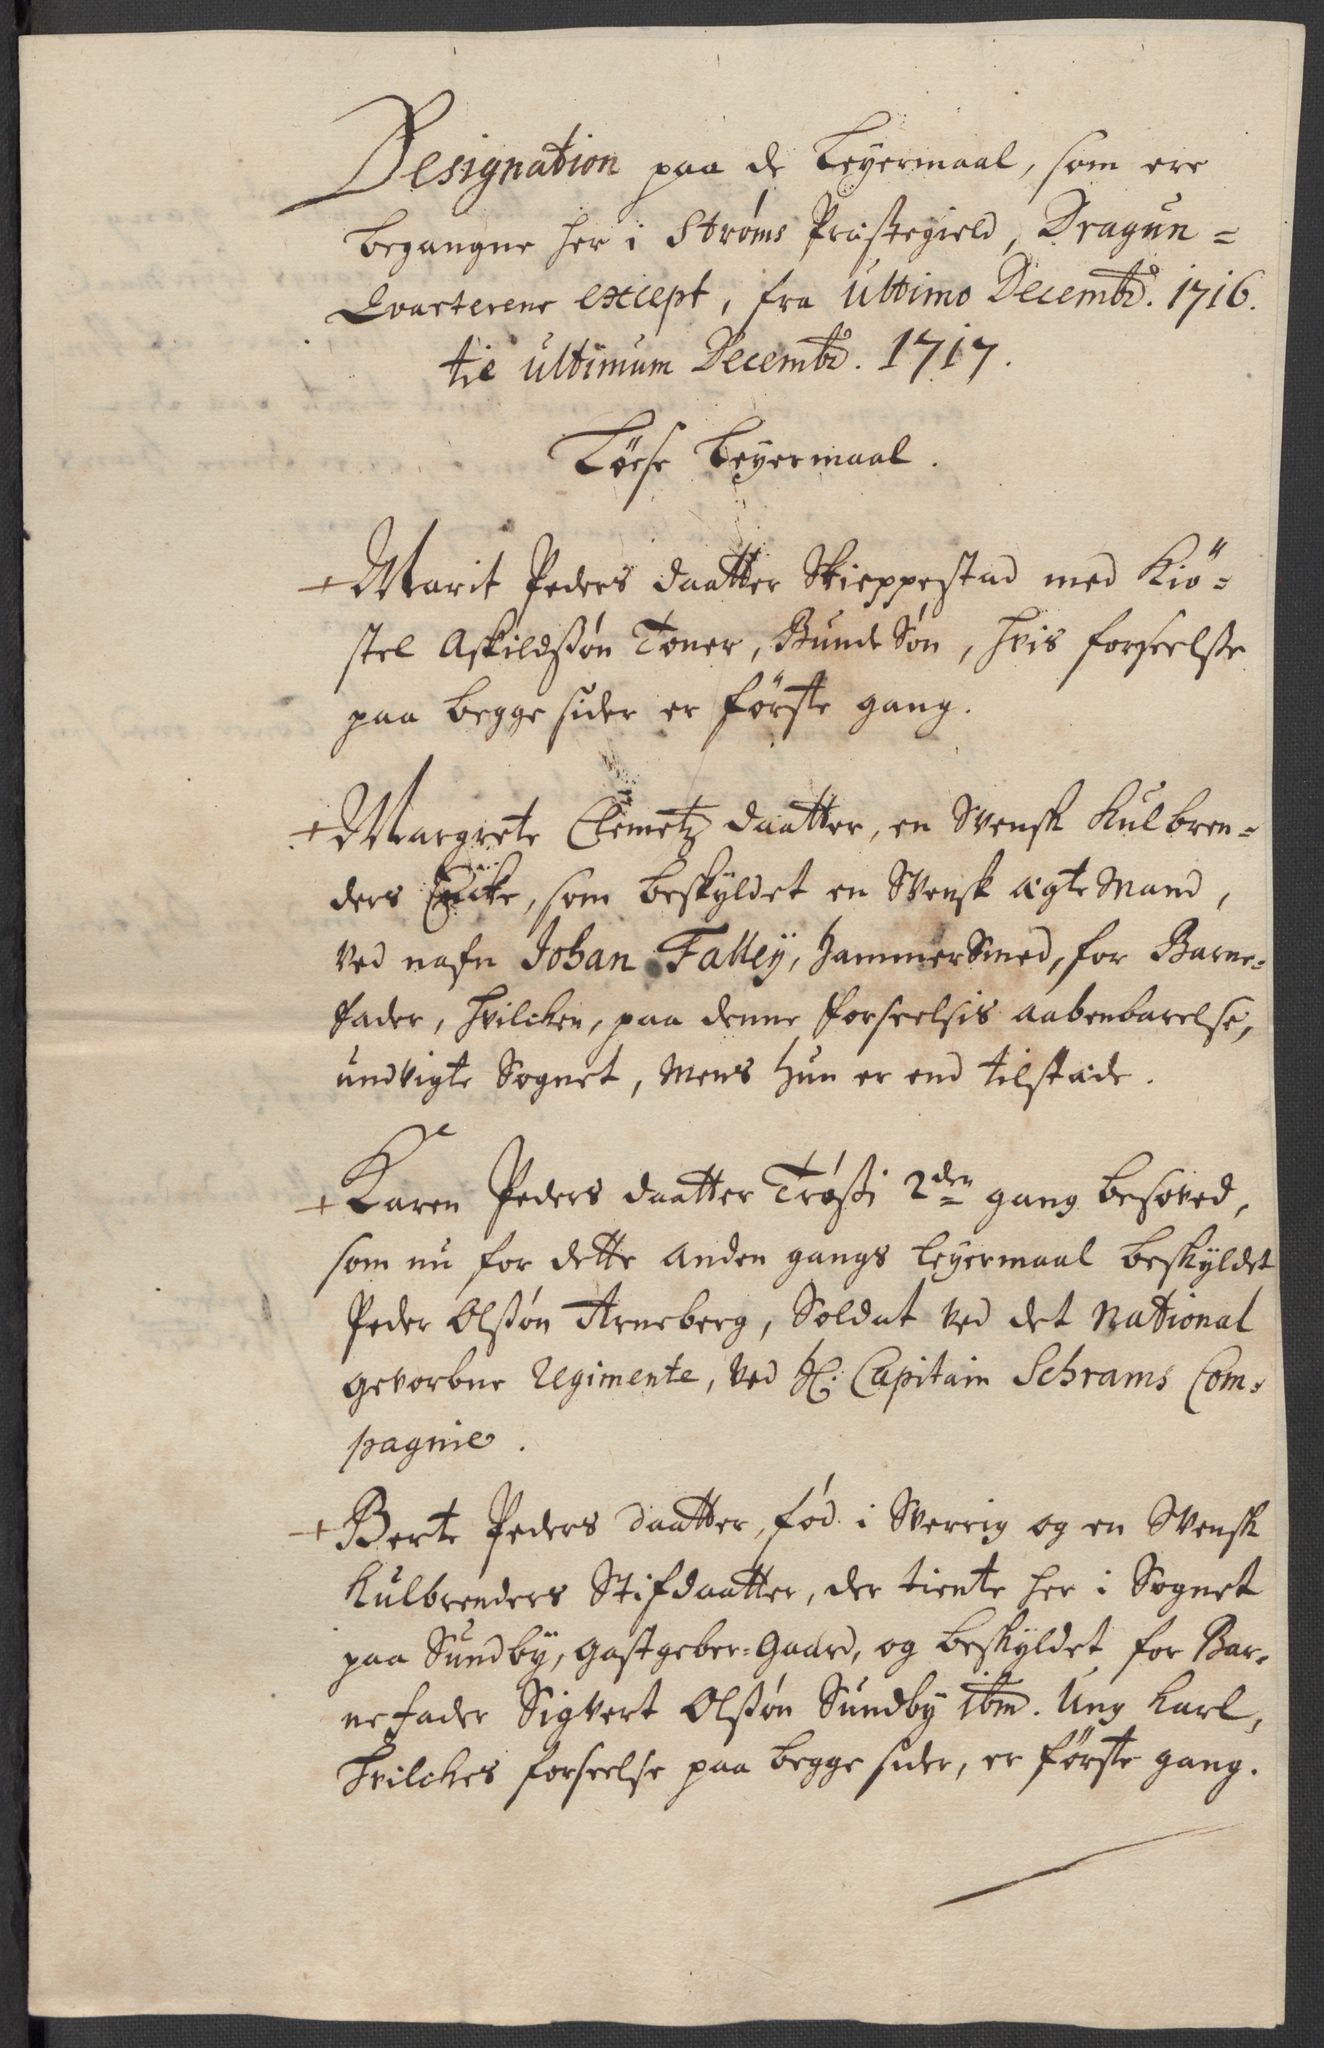 Designation paa de Leyermaal, som ere
begangne her i Strøms Præstegield, Dragun=
Qvarterene except, fra ultimo Decembr. 1716.
til ultimum Decembr. 1717.
Løese Leyermaal.
+ Marit Peders daatter Skieppestad med Kiö=
stel Askildssøn Toner, BundeSøn, hvis forseelsse
paa begge sider er første gang.
+ Margrete Clemetz daatter, en Svensk Kulbren=
ders Encke, som beskyldet en Svensk ægte Mand,
ved nafn Johan Falleÿ, HammerSmed, for Barne=
fader, hvilcken, paa denne forseelsis aabenbarelse,
undvigte Sognet, Mens hun er end tilstæde.
+ Karen Peders daatter Trøssi 2den gang besoved,
som nu for dette anden gangs Leyermaal beskyldet
Peder Olssøn Arneberg, Soldat ved det National
gevorbne Regimente, ved H: Capitain Schrams Com=
pagnie.
+ Berte Peders daatter, fød i Sverrig og en Svensk
Kulbrenders Stifdaatter, der tiente her i Sognet
paa Sundbÿ, gastgeber=Gaard, og beskyldet for Bar=
nefader Sigvert Olssøn Sundby ibm. Ung karl,
hvilckes forseelse paa begge sider, er første gang.